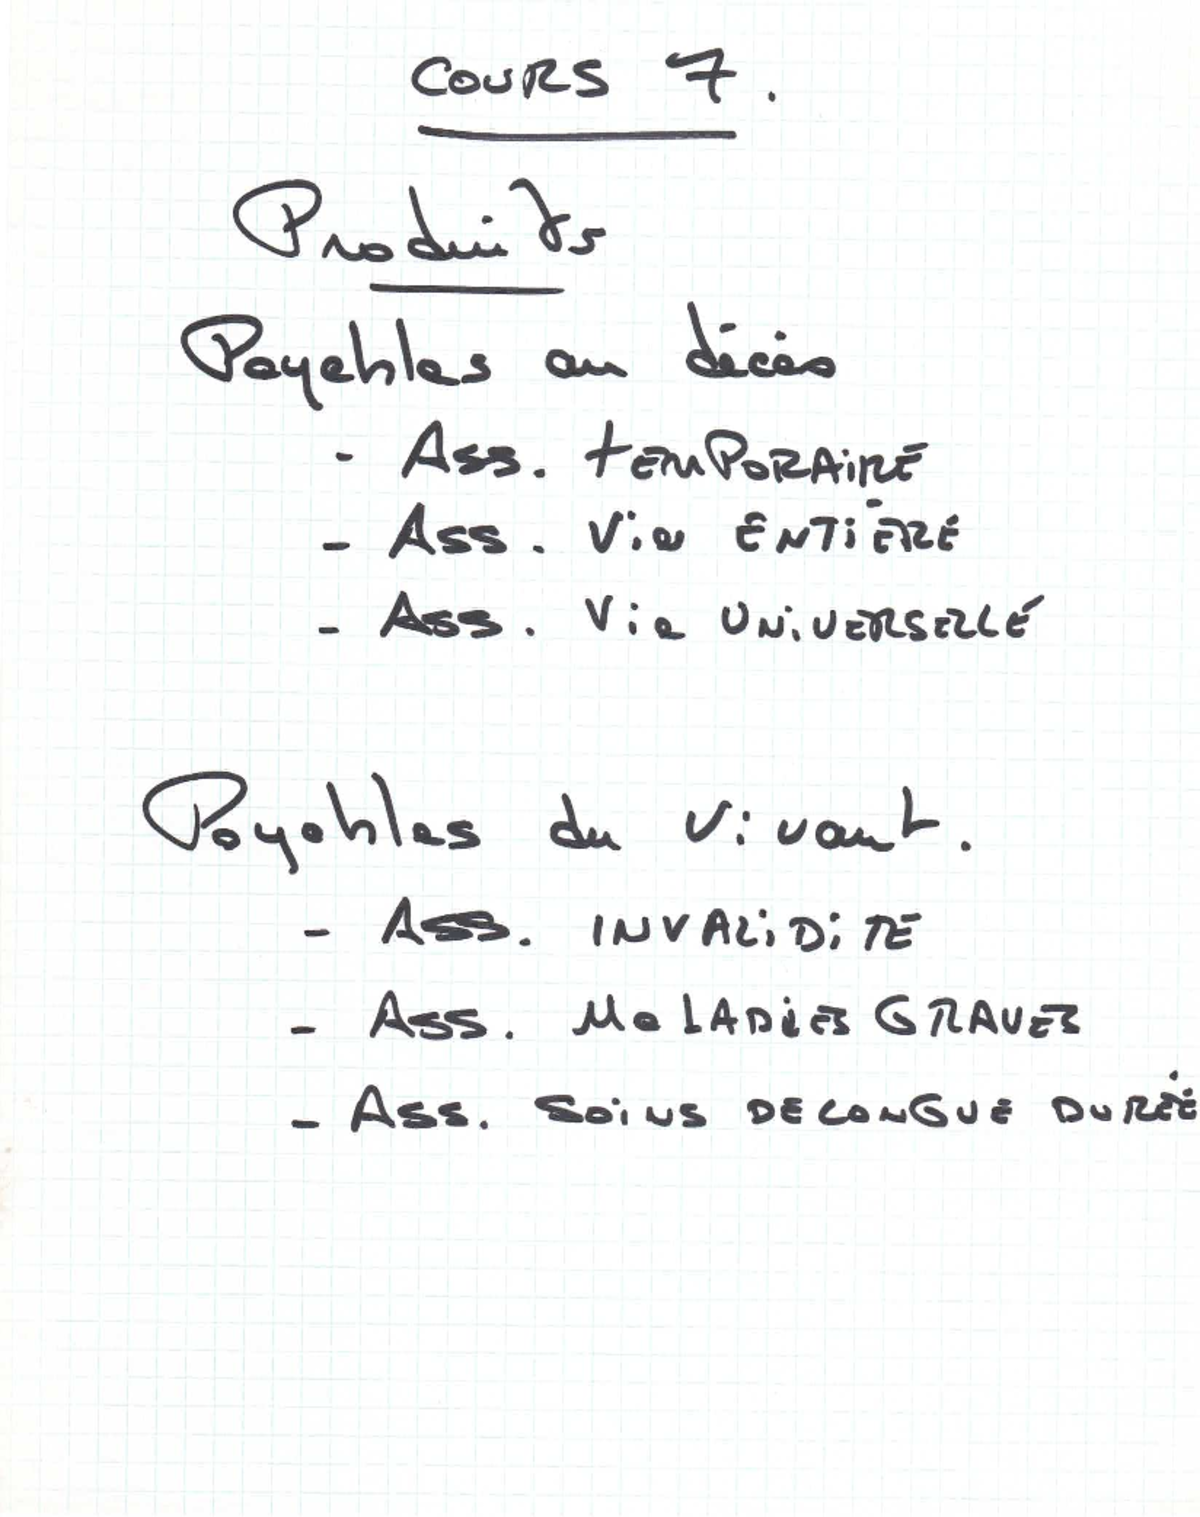 COURS 7.
Produits
Payables au décès
- Ass. TEMPORAIRE
- Ass. Vie ENTIÈRE
- Ass. Vie UNIVERSELLE
Payables du vivant.
- Ass. INVALIDITE
- Ass. MALADIES GRAVES
- Ass. SOINS DE LONGUE DURÉE